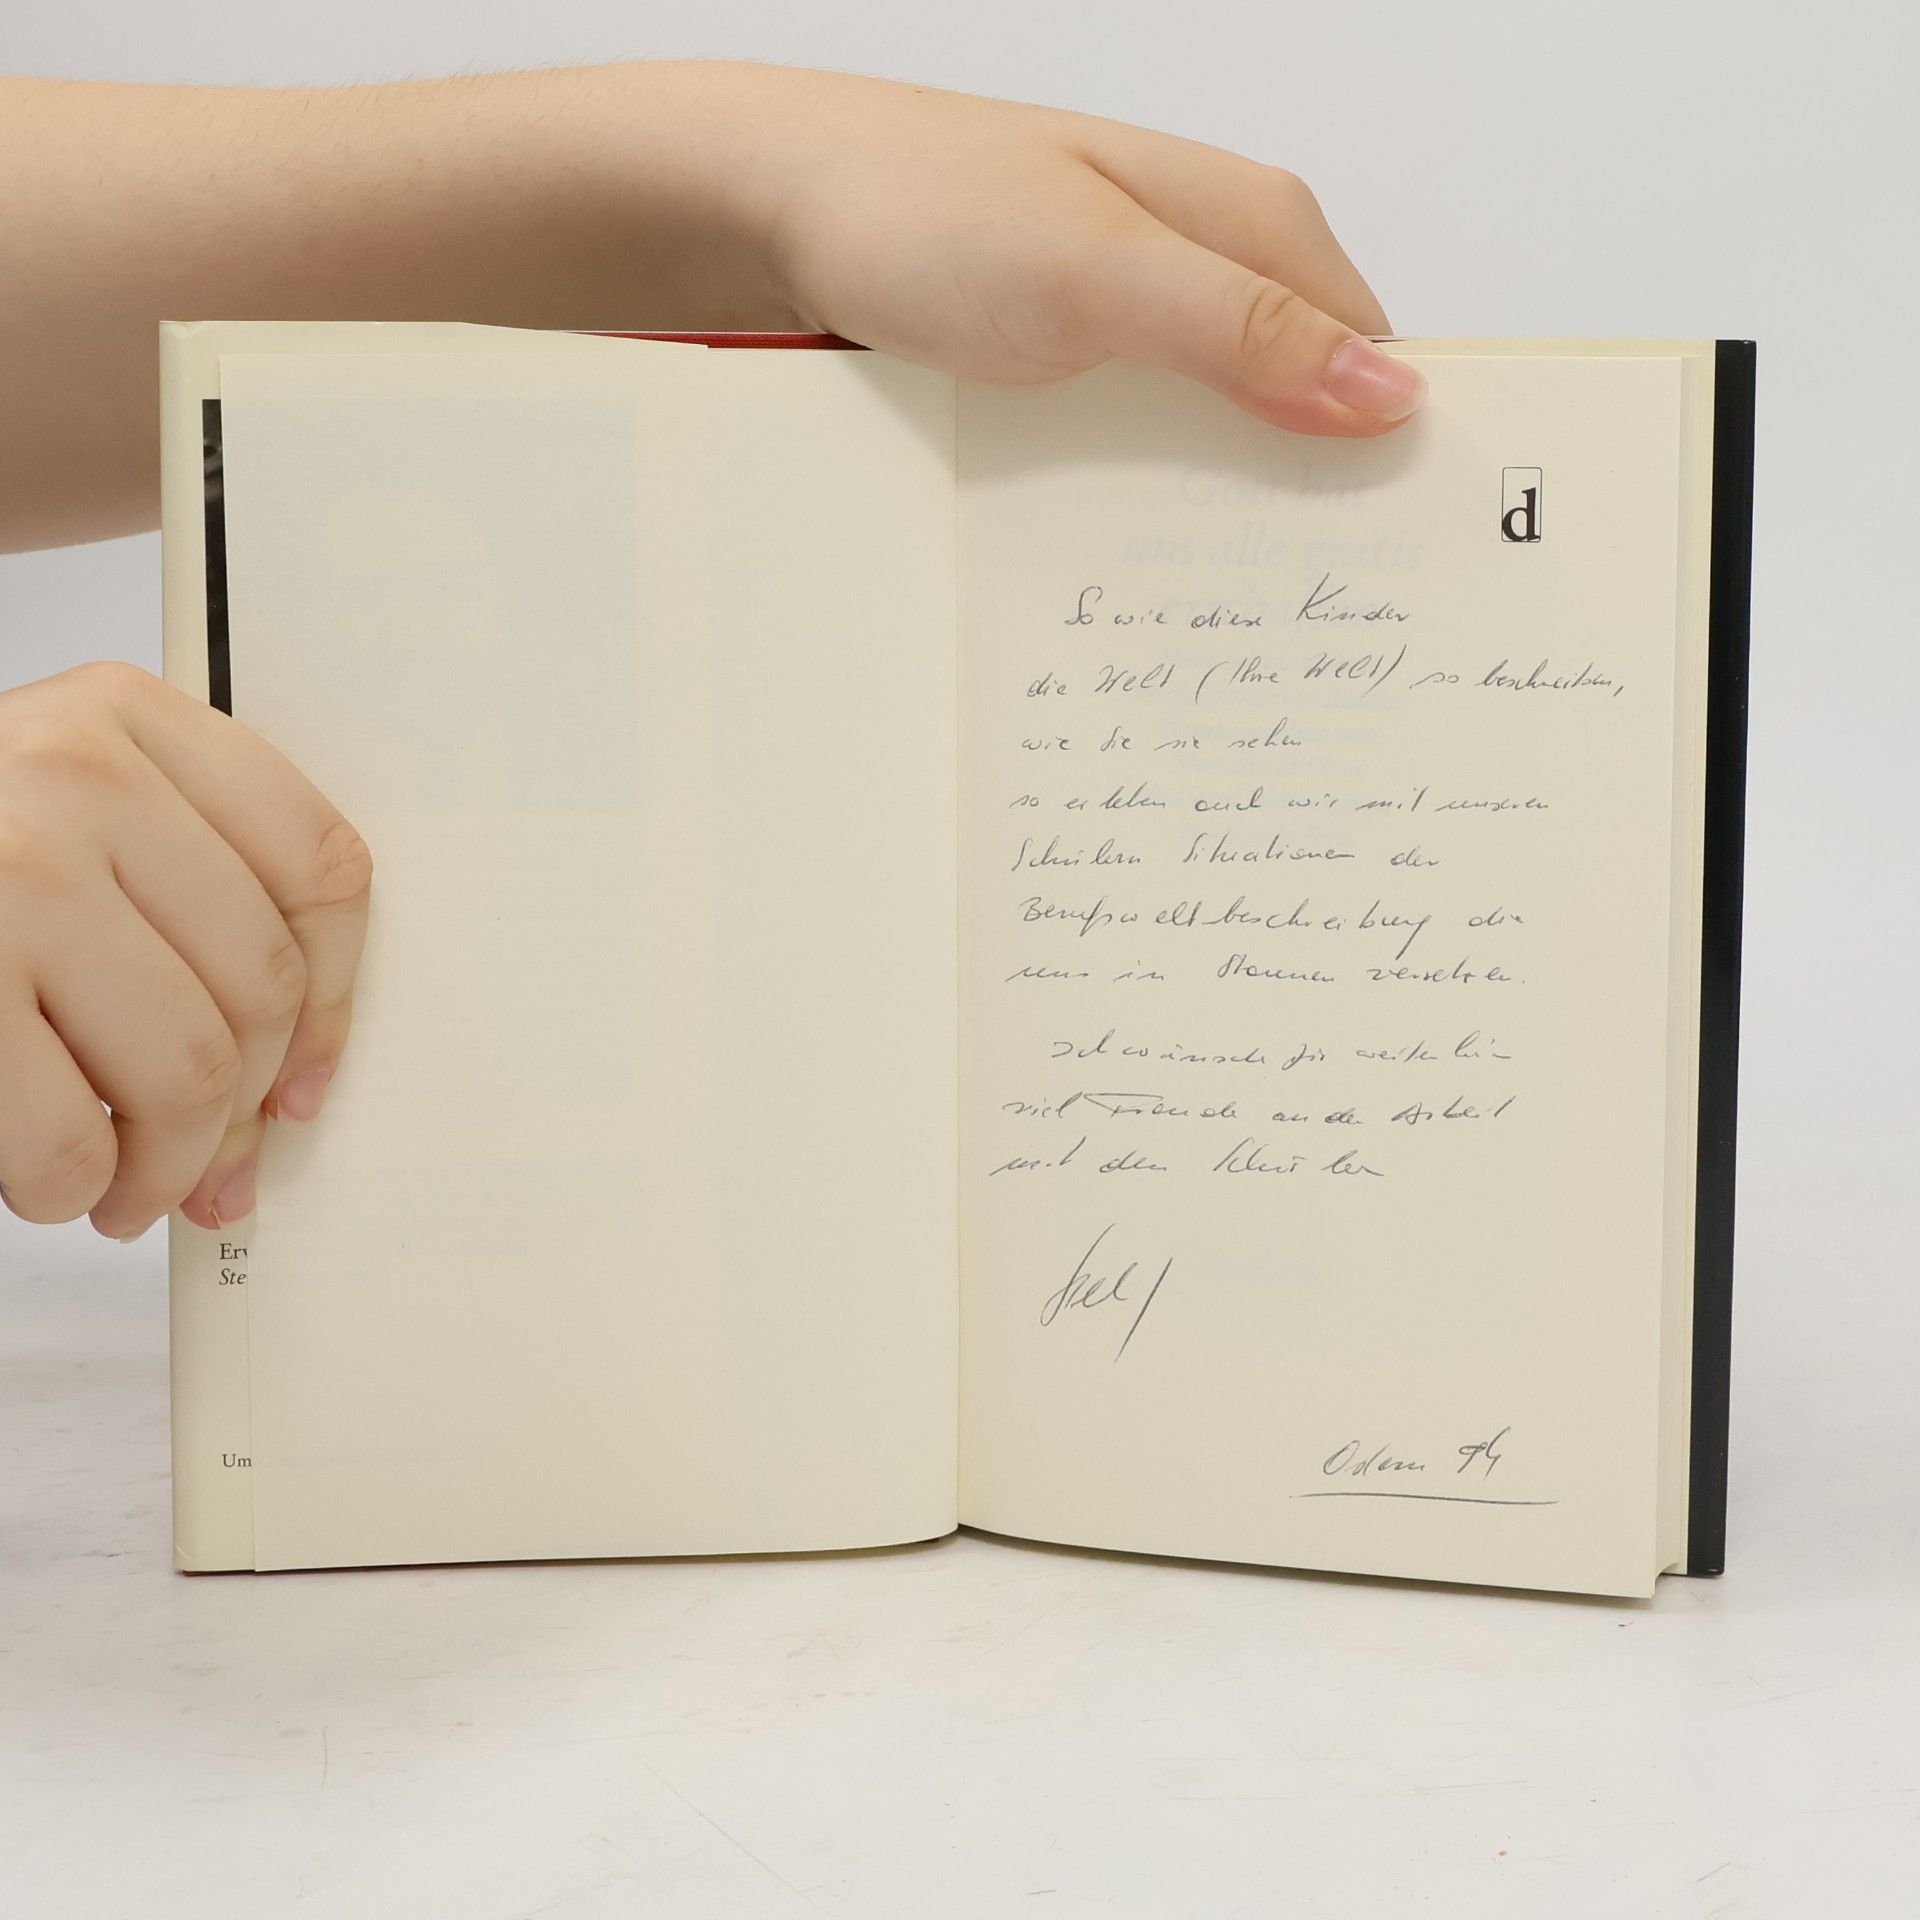 d
So wie diese Kinder
die Welt (Ihre Welt) so beschreiben,
wie Sie sie sehen
so erleben auch wir mit unseren
Schülern Situationen der
Berufsweltbeschreibung die
uns in Staunen versetzen.
Ich wünsche Dir weiterhin
viel Freude an der Arbeit
mit den Schülern
Ostern 94
Erv
Ste
Um
Gott hat
uns alle gratis